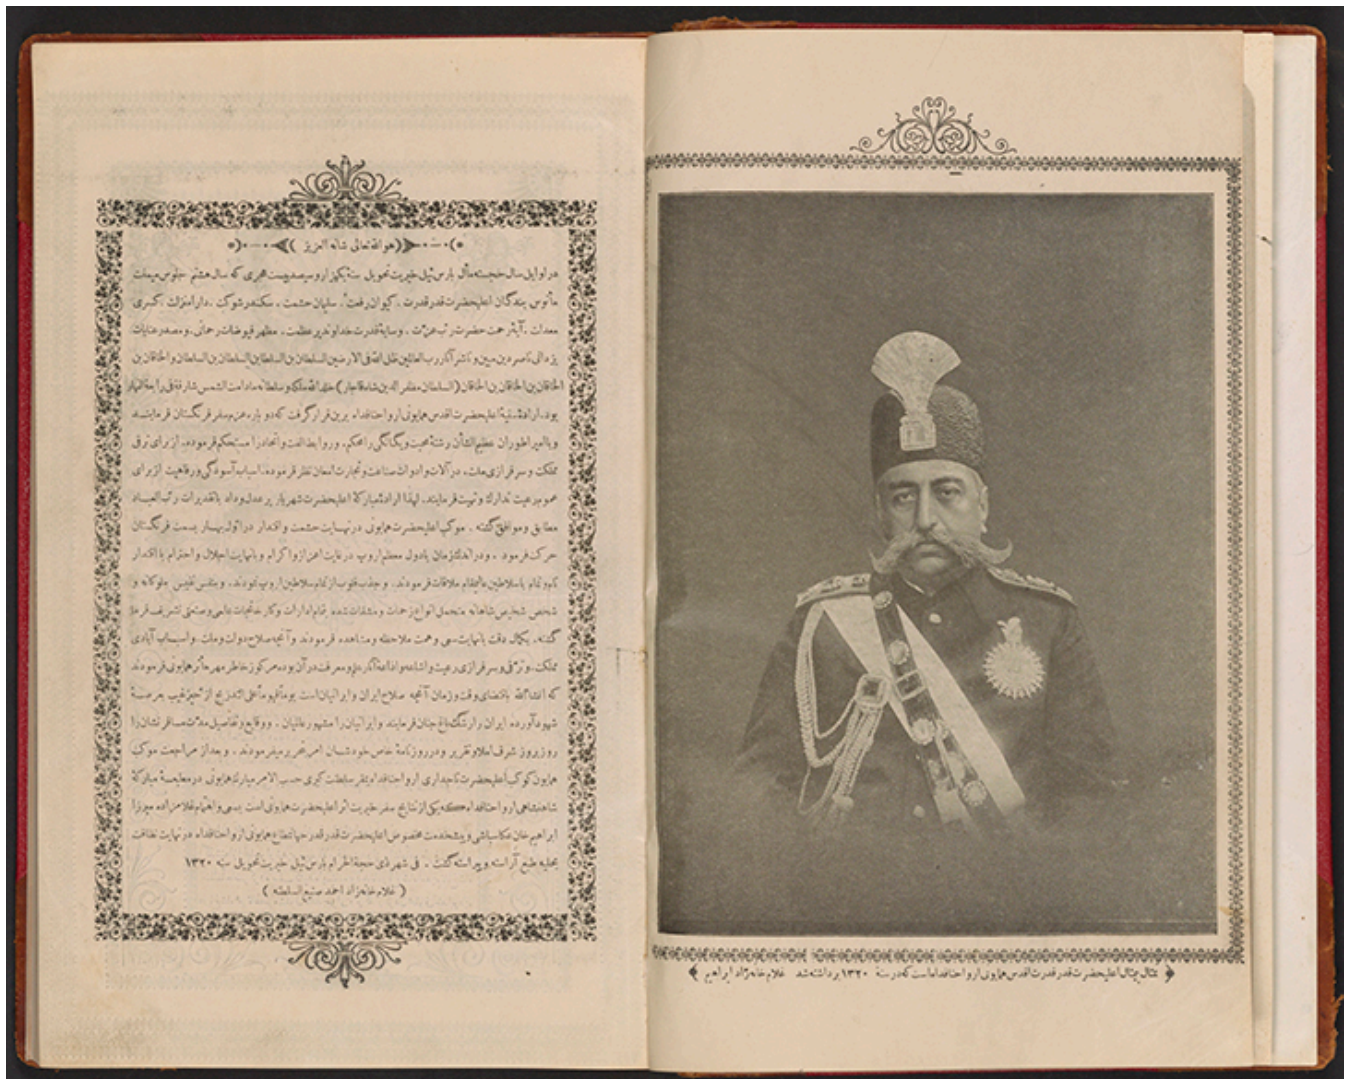 تمثال بیمثال اعلیحضرت قدر قدرت اقدس همایونی ارواحنا فداه است که در سنهٔ ۱۳۲۰ برداشته شد غلام خانه‌زاد ابراهیم
هو الله تعالی شانه العزیز
در اوایل سال خجسته مآل بارس ئیل خیریت تحویل سنهٔ یکهزار و سیصد و بیست هجری که سال هشتم جلوس میمنت
مأنوس بندگان اعلیحضرت قدر قدرت ، کیوان رفعت ، سلیمان حشمت ، سکندر شوکت ، دارا منزلت ، کسری
معدلت ، آیهٔ رحمت حضرت رب عزت ، و سایهٔ قدرت خداوند پر عظمت ، مظهر فیوضات رحمانی ، و مصدر عنایات
یزدانی ناصر دین مبین و ناشر آثار رب العالمین ظل الله فی الارضین السلطان بن السلطان بن السلطان بن السلطان و الخاقان بن
الخاقان بن الخاقان بن الخاقان (السلطان مظفر الدین شاه قاجار) خلد الله ملکه و سلطانه مادامت الشمس شارقة فی رابعة النهار
بود، ارادهٔ سنیهٔ اعلیحضرت اقدس همایونی ارواحنا فداه برین قرار گرفت که دوباره عزم سفر فرنگستان فرمایند
و با امپراطوران عظیم الشأن رشتهٔ محبت و یگانگی را محکم، و روابط الفت و اتحاد را مستحکم فرموده، از برای ترقی
مملکت و سرفرازی ملت، در آلات و ادوات صناعت و تجارت امعان نظر فرموده، اسباب آسودگی و رفاهیت از برای
عموم رعیت تدارک و تهیه فرمایند، لهذا ارادهٔ مبارکهٔ اعلیحضرت شهریار پر عدل و داد با تقدیرات رب العباد
مطابق و موافق گشته ، موکب اعلیحضرت همایونی در نهایت حشمت و اقتدار در اول بهار بسمت فرنگستان
حرکت فرمود ، و در اندک زمان با دول معظم اروپ در غایت اعزاز و اکرام و با نهایت اجلال و احترام با اقتدار
تام و تمام با سلاطین عالیمقام ملاقات فرمودند، و جذب قلوب از تمام سلاطین اروپ نمودند، و بنفس نفیس ملوکانه و
شخص شخیص شاهانه متحمل انواع زحمات و مشقات شده تمام ادارات و کارخانجات علمی و صنعتی تشریف فرما
گشته، بکمال دقت با نهایت سعی و همت ملاحظه و مشاهده فرمودند و آنچه صلاح دولت و ملت و اسباب آبادی
مملکت، و ترقی و سرفرازی رعیت و اشاعه و اذاعهٔ آثار علم و معرفت در آن بوده مرکوز خاطر مهر مآثر همایونی فرمودند
که انشاء الله باقتضای وقت و زمان آنچه صلاح ایران و ایرانیان است یوماً فیوماً علی التدریج از حیز غیب بعرصهٔ
شهود آورده ایران را رشک باغ جنان فرمایند و ایرانیان را مشهور عالمیان ، و وقایع و تفاصیل مدت مسافرتشان را
روز بروز شرف املا و تقریر و در روزنامهٔ خاص خودشان امر تحریر میفرمودند ، و بعد از مراجعت موکب
همایون کوکب اعلیحضرت تاجداری ارواحنا فداه بمقر سلطنت کبری حسب الامر مبارک همایونی در مطبعهٔ مبارکهٔ
شاهنشاهی ارواحنا فداه که یکی از نتایج سفر خیریت اثر اعلیحضرت همایونی است بسعی و اهتمام غلامزاده میرزا
ابراهیم خان عکاسباشی و پیشخدمت مخصوص اعلیحضرت قدر قدر جهانمطاع همایونی ارواحنا فداه در نهایت نظافت
بحلیه طبع آراسته و پیراسته گشت ، فی شهر ذی حجة الحرام بارس ئیل خیریت تحویل سنه ۱۳۲۰
(غلام خانه‌زاد احمد صنیع السلطنه)